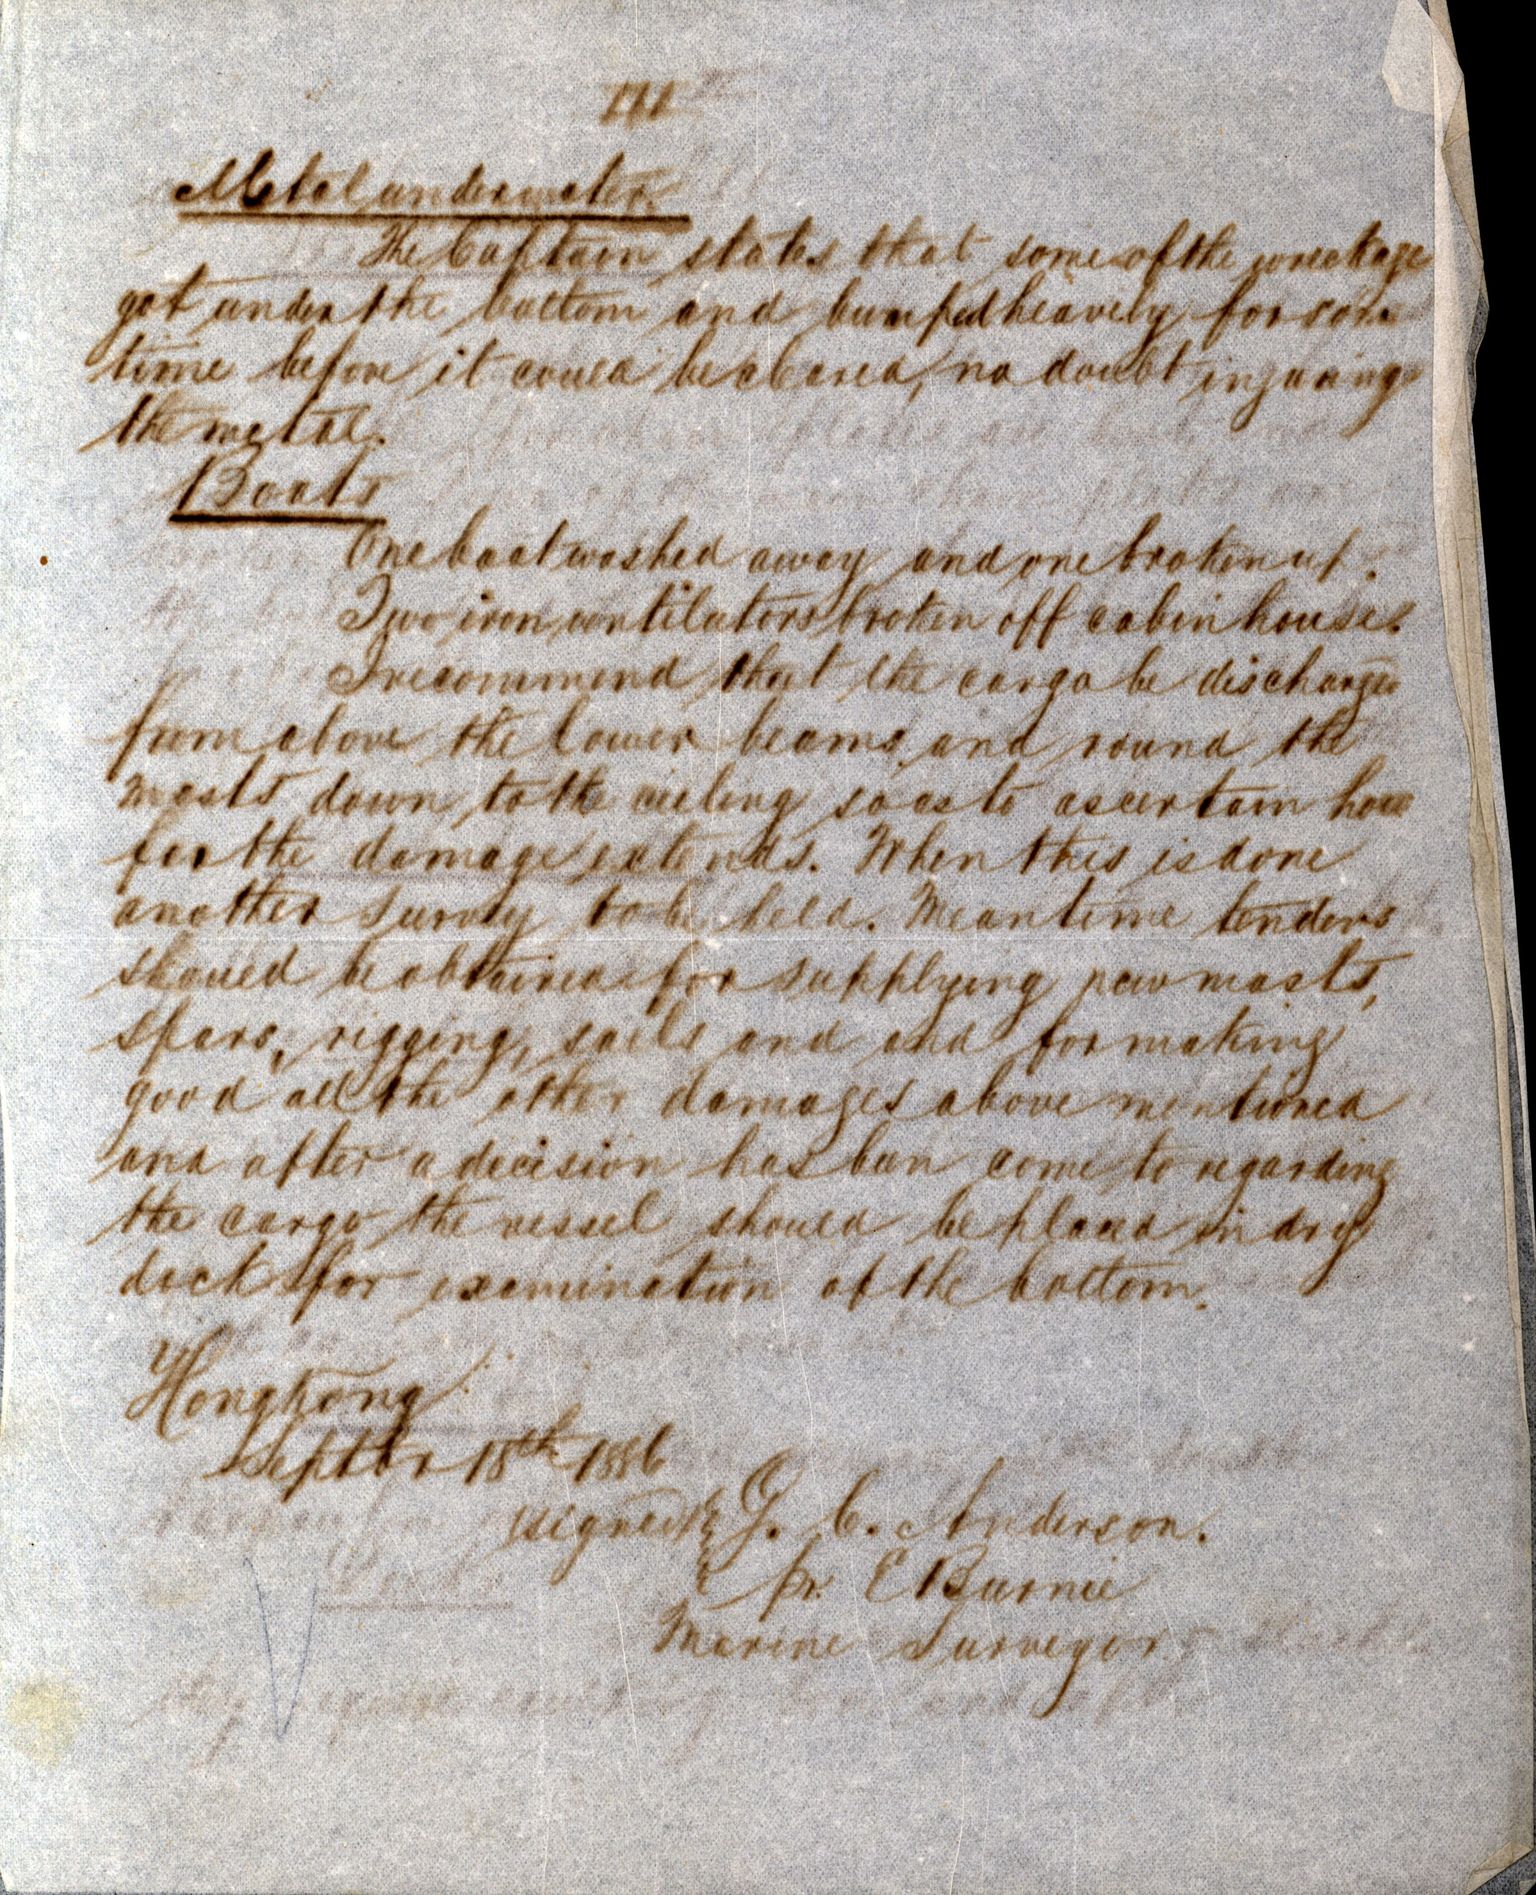 III
Metal under water.
The Captain states that some of the wreckage
got under the bottom and bumped heavily for some
time before it could be cleared, no doubt injuring
the metal.
Boats
One boat washed away and one broken up.
Two iron ventilators broken off cabin house.
I recommend that the cargo be discharged
from above the lower beams and round the
masts down to the ceiling so as to ascertain how
far the damage extends. When this is done
another survey to be held. Meantime tenders
should be obtained for supplying new masts,
spars, rigging, sails and and for making
good all the other damages above mentioned
and after a decision has been come to regarding
the cargo the vessel should be placed in dry
dock for examination of the bottom.
Hongkong
Septbr 18th 1886
signed G. C. Anderson.
pr. E Burnie
Marine Surveyor.